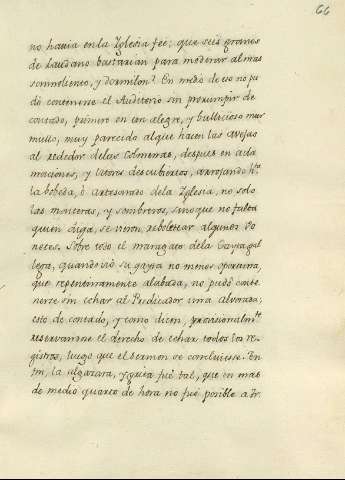 66
no havia en la Iglesia feé: que seis granos
de laudano bastarian para moderar al mas
somnoliento, y dormilon? En medo de eso no pu
do contenerse el Auditorio sin prorrumpir de
contado, primero en un alegre, y bullicioso mur
mullo, muy parecido al que hacen las avejas
al rededor de las Colmenas, despues en acla
maciones, y vitores descubiertos, arrojando hta
la bobeda, ò artesonado de la Iglesia, no solo
las monteras, y sombreros, sino que no faltó
quien diga, se vieron rebolotear algunos bo
netes. Sobre todo el maragato de la Gayta gal
lega, quando vió su gayta no menos oportuna,
que repentinamente alabada, no pudó conte
nerse sin echar al Predicador una alvorada,
esto de contado, y como dicen, provisionalmte
reservandose el derecho de echar todos los re
gistros, luego que el sermon se concluiese. En
fin, la algazara, y grita fué tal, que en mas
de medio quarto de hora no fué posible a Fr.